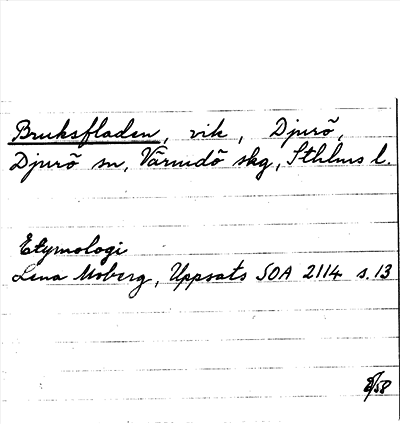 Bruksfladen, vik, Djurö,
Djurö sn, Värmdö skg, Sthlms l.
Etymologi
Lena Moberg, Uppsats SOA 2114 s. 13